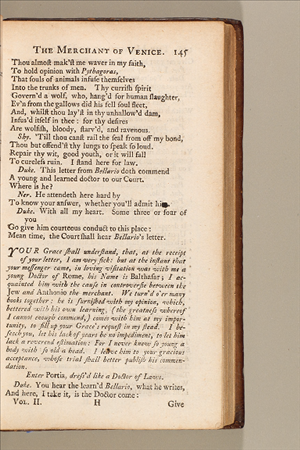 The Merchant of Venice. 145
Thou almost mak'st me waver in my faith,
To hold opinion with Pythagoras,
That souls of animals infuse themselves
Into the trunks of men. Thy currish spirit
Govern'd a wolf, who, hang'd for human slaughter,
Ev'n from the gallows did his fell soul fleet,
And, whilst thou lay'st in thy unhallow'd dam,
Infus'd itself in thee: for thy desires
Are wolfish, bloody, starv'd, and ravenous.
Shy. 'Till thou canst rail the seal from off my bond,
Thou but offend'st thy lungs to speak so loud.
Repair thy wit, good youth, or it will fall
To cureless ruin. I stand here for law.
Duke. This letter from Bellario doth commend
A young and learned doctor to our Court.
Where is he?
Ner. He attendeth here hard by
To know your answer, whether you'll admit him.
Duke. With all my heart. Some three or four of
you
Go give him courteous conduct to this place:
Mean time, the Court shall hear Bellario's letter.
YOUR Grace shall understand, that, at the receipt
of your letter, I am very sick: but at the instant that
your messenger came, in loving visitation was with me a
young Doctor of Rome, his Name is Balthasar; I ac-
quainted him with the cause in controversie between the
Jew and Anthonio the merchant. We turn'd o'er many
books together: he is furnished with my opinion, which,
bettered with his own learning, (the greatness whereof
I cannot enough commend,) comes with him at my impor-
tunity, to fill up your Grace's request in my stead. I be-
seech you, let his lack of years be no impediment, to let him
lack a reverend estimation: For I never knew so young a
body with so old a head. I leave him to your gracious
acceptance, whose trial shall better publish his commen-
dation.
Enter Portia, dress'd like a Doctor of Laws.
Duke. You hear the learn'd Bellario, what he writes,
And here, I take it, is the Doctor come:
Vol. II. H Give